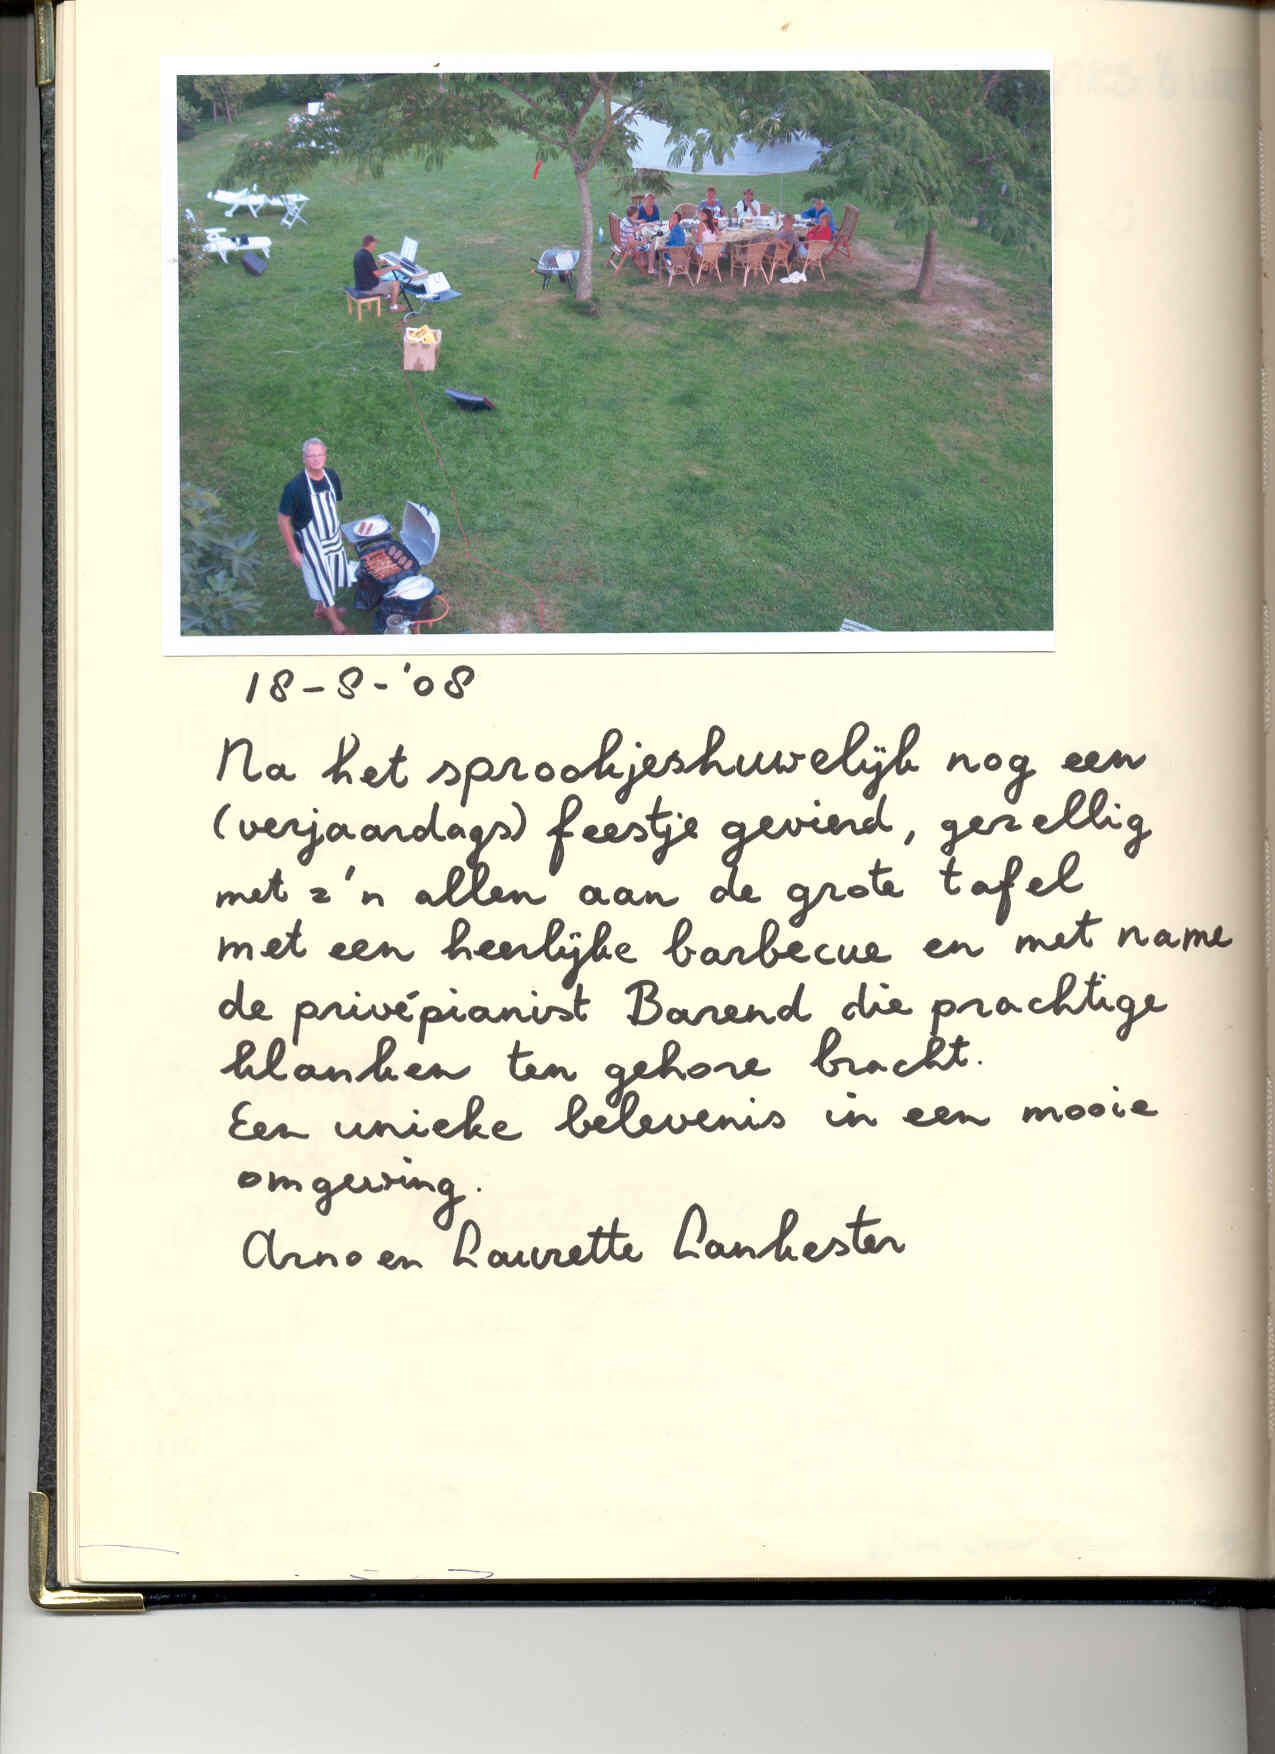 18-8-'08
Na het sprookjeshuwelijk nog een
(verjaardags) feestje gevierd, gezellig
met z'n allen aan de grote tafel
met een heerlijke barbecue en met name
de privépianist Barend die prachtige
klanken ten gehore bracht.
Een unieke belevenis in een mooie
omgeving.
Arno en Laurette Lankester